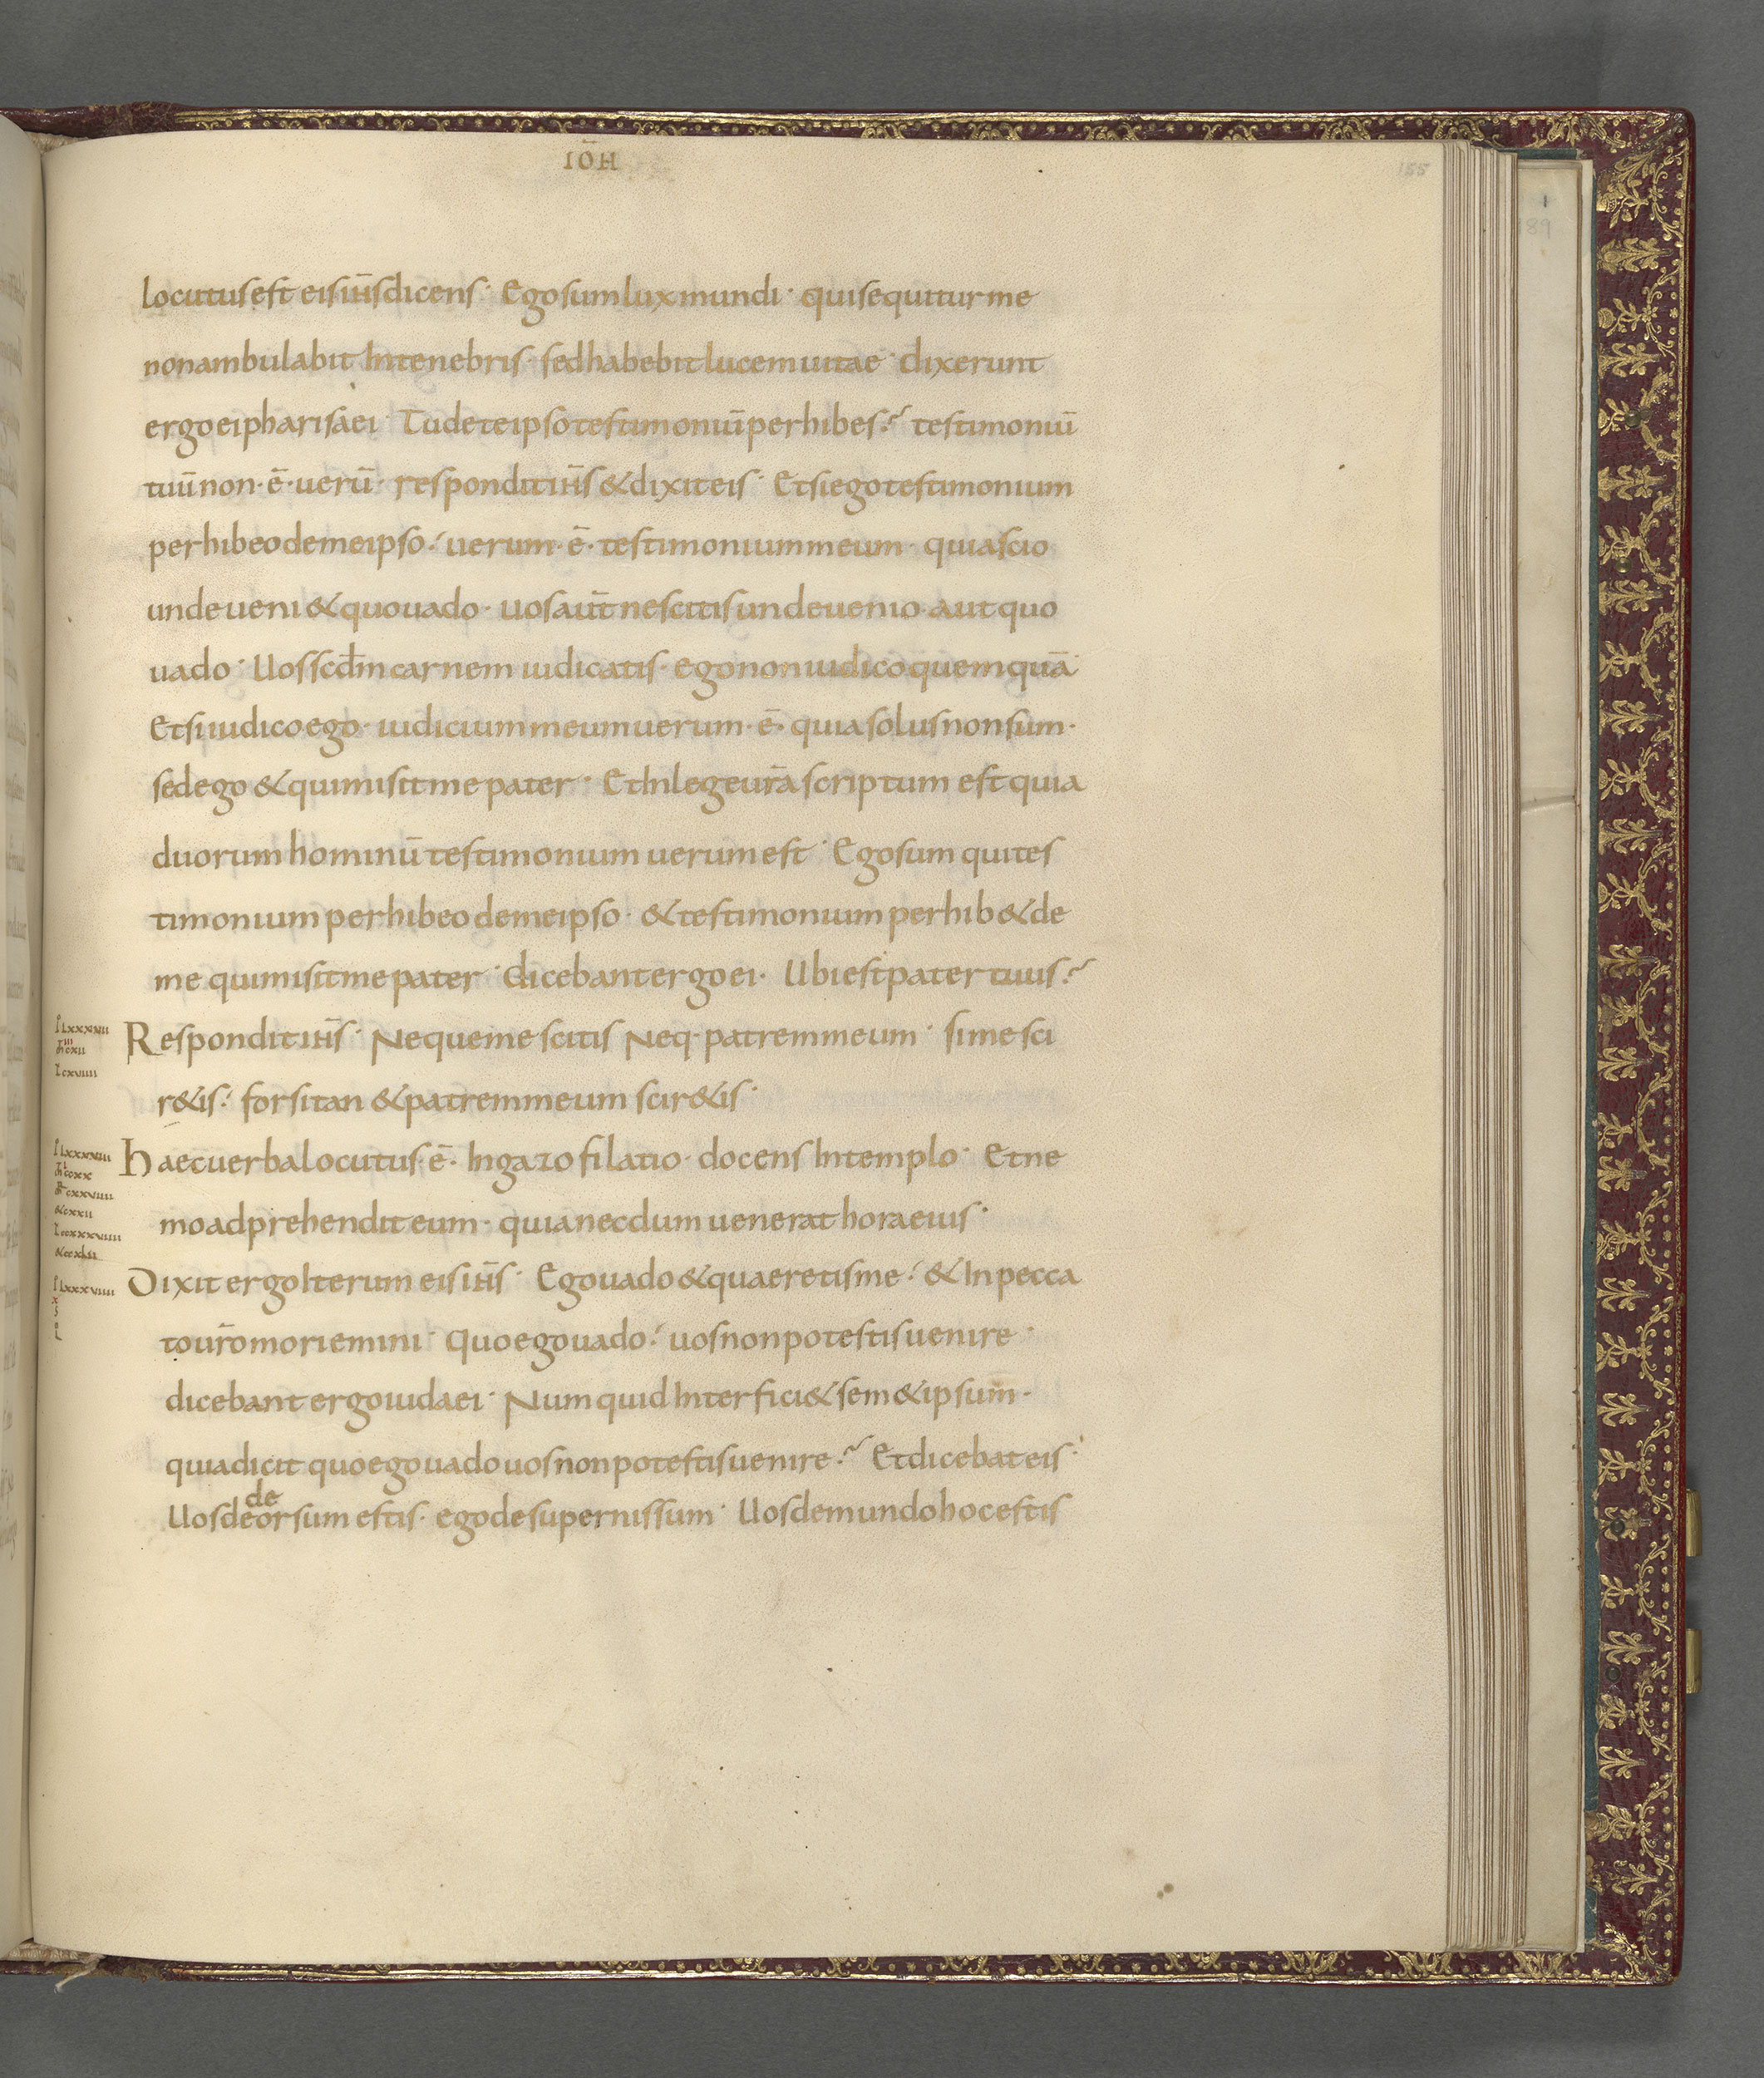 IOH̄
155
locutus est eis ih̄s dicens· Ego sum lux mundi· qui sequitur me
non ambulabit In tenebris· sed habebit lucem uitae· dixerunt
ergo ei pharisaei· Tu de te ipso testimoniū perhibes? testimoniū
tuū non·ē·uerū· respondit ih̄s & dixit eis· Et si ego testimonium
perhibeo de me ipso· uerum·ē·testimonium meum· quia scio
unde ueni & quo uado· uos aūt nescitis unde uenio· aut quo
uado· Uos scdm̄ carnem iudicatis· ego non iudico quemquā·
Et si iudico ego· iudicium meum uerum·ē· quia solus non sum·
sed ego & qui misit me pater· Et In lege ur̄a scriptum est quia
duorum hominū testimonium uerum est· Ego sum qui tes
timonium perhibeo de me ipso· & testimonium perhib& de
me qui misit me pater· dicebant ergo ei· Ubi est pater tuus?
Respondit ih̄s· Neque me scitis Neq· patrem meum· si me sci
r&is· forsitan & patrem meum scir&is·
Haec uerba locutus·ē· In gazofilatio· docens In templo· Et ne
mo adprehendit eum· quia necdum uenerat hora eius·
Dixit ergo Iterum eis ih̄s· Ego uado & quaeretis me· & In pecca
to ur̄o moriemini· Quo ego uado· uos non potestis uenire·
dicebant ergo iudaei· Numquid Interfici& sem&ipsum̄·
quia dicit quo ego uado uos non potestis uenire? Et dicebat eis·
de
Uos deorsum estis· ego de supernis sum· Uos de mundo hoc estis